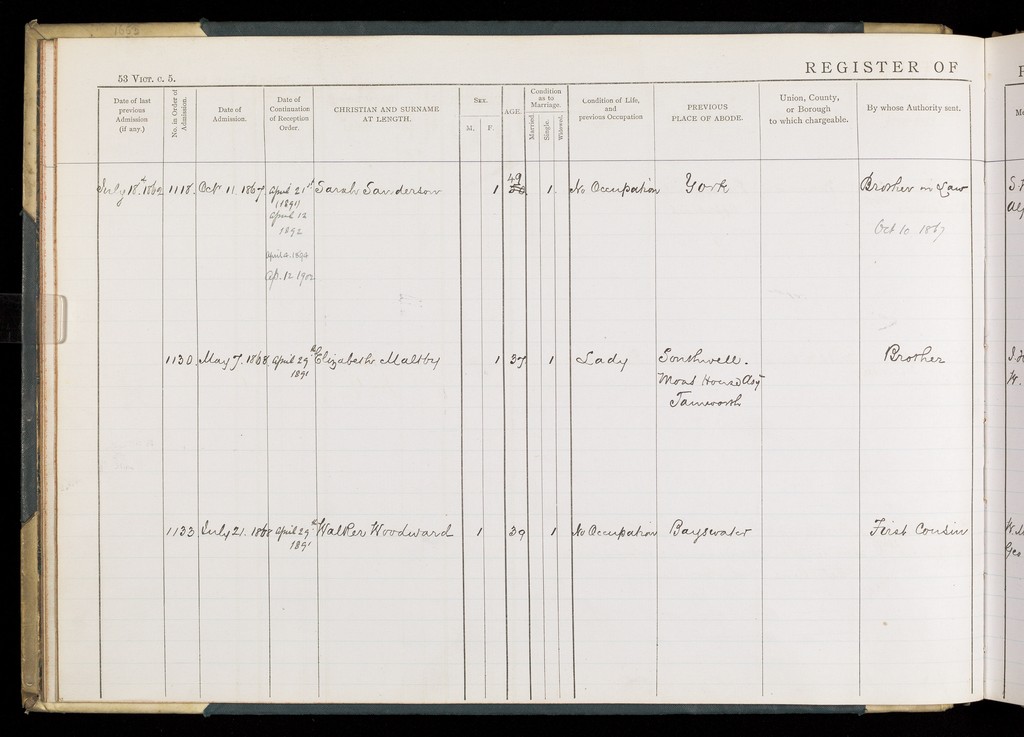 53 VICT. c. 5.
REGISTER OF
Date of last previous Admission (if any.)
No. in Order of Admission.
Date of Admission.
Date of Continuation of Reception Order.
CHRISTIAN AND SURNAME AT LENGTH.
SEX.
M.
F.
AGE.
Condition as to Marriage.
Married.
Single.
Widowed.
Condition of Life, and previous Occupation
PREVIOUS PLACE OF ABODE.
Union, County, or Borough to which chargeable.
By whose Authority sent.
July 18th 1862 1118. Oct 11. 1867 April 21st Sarah Sanderson 1 49 1. No Occupation York Brother in Law
(1891)
April 12
1892
Oct 10. 1867
April 4. 1894
Ap. 12 1902
1130. May 7. 1868. April 29th Elizabeth Maltby 1 37 1 Lady Southwell. Brother
1891
Moat House Asy
Tamworth
1133 July 21. 1868 April 29th Walker Woodward 1 39 1 No Occupation Bayswater First Cousin
1891